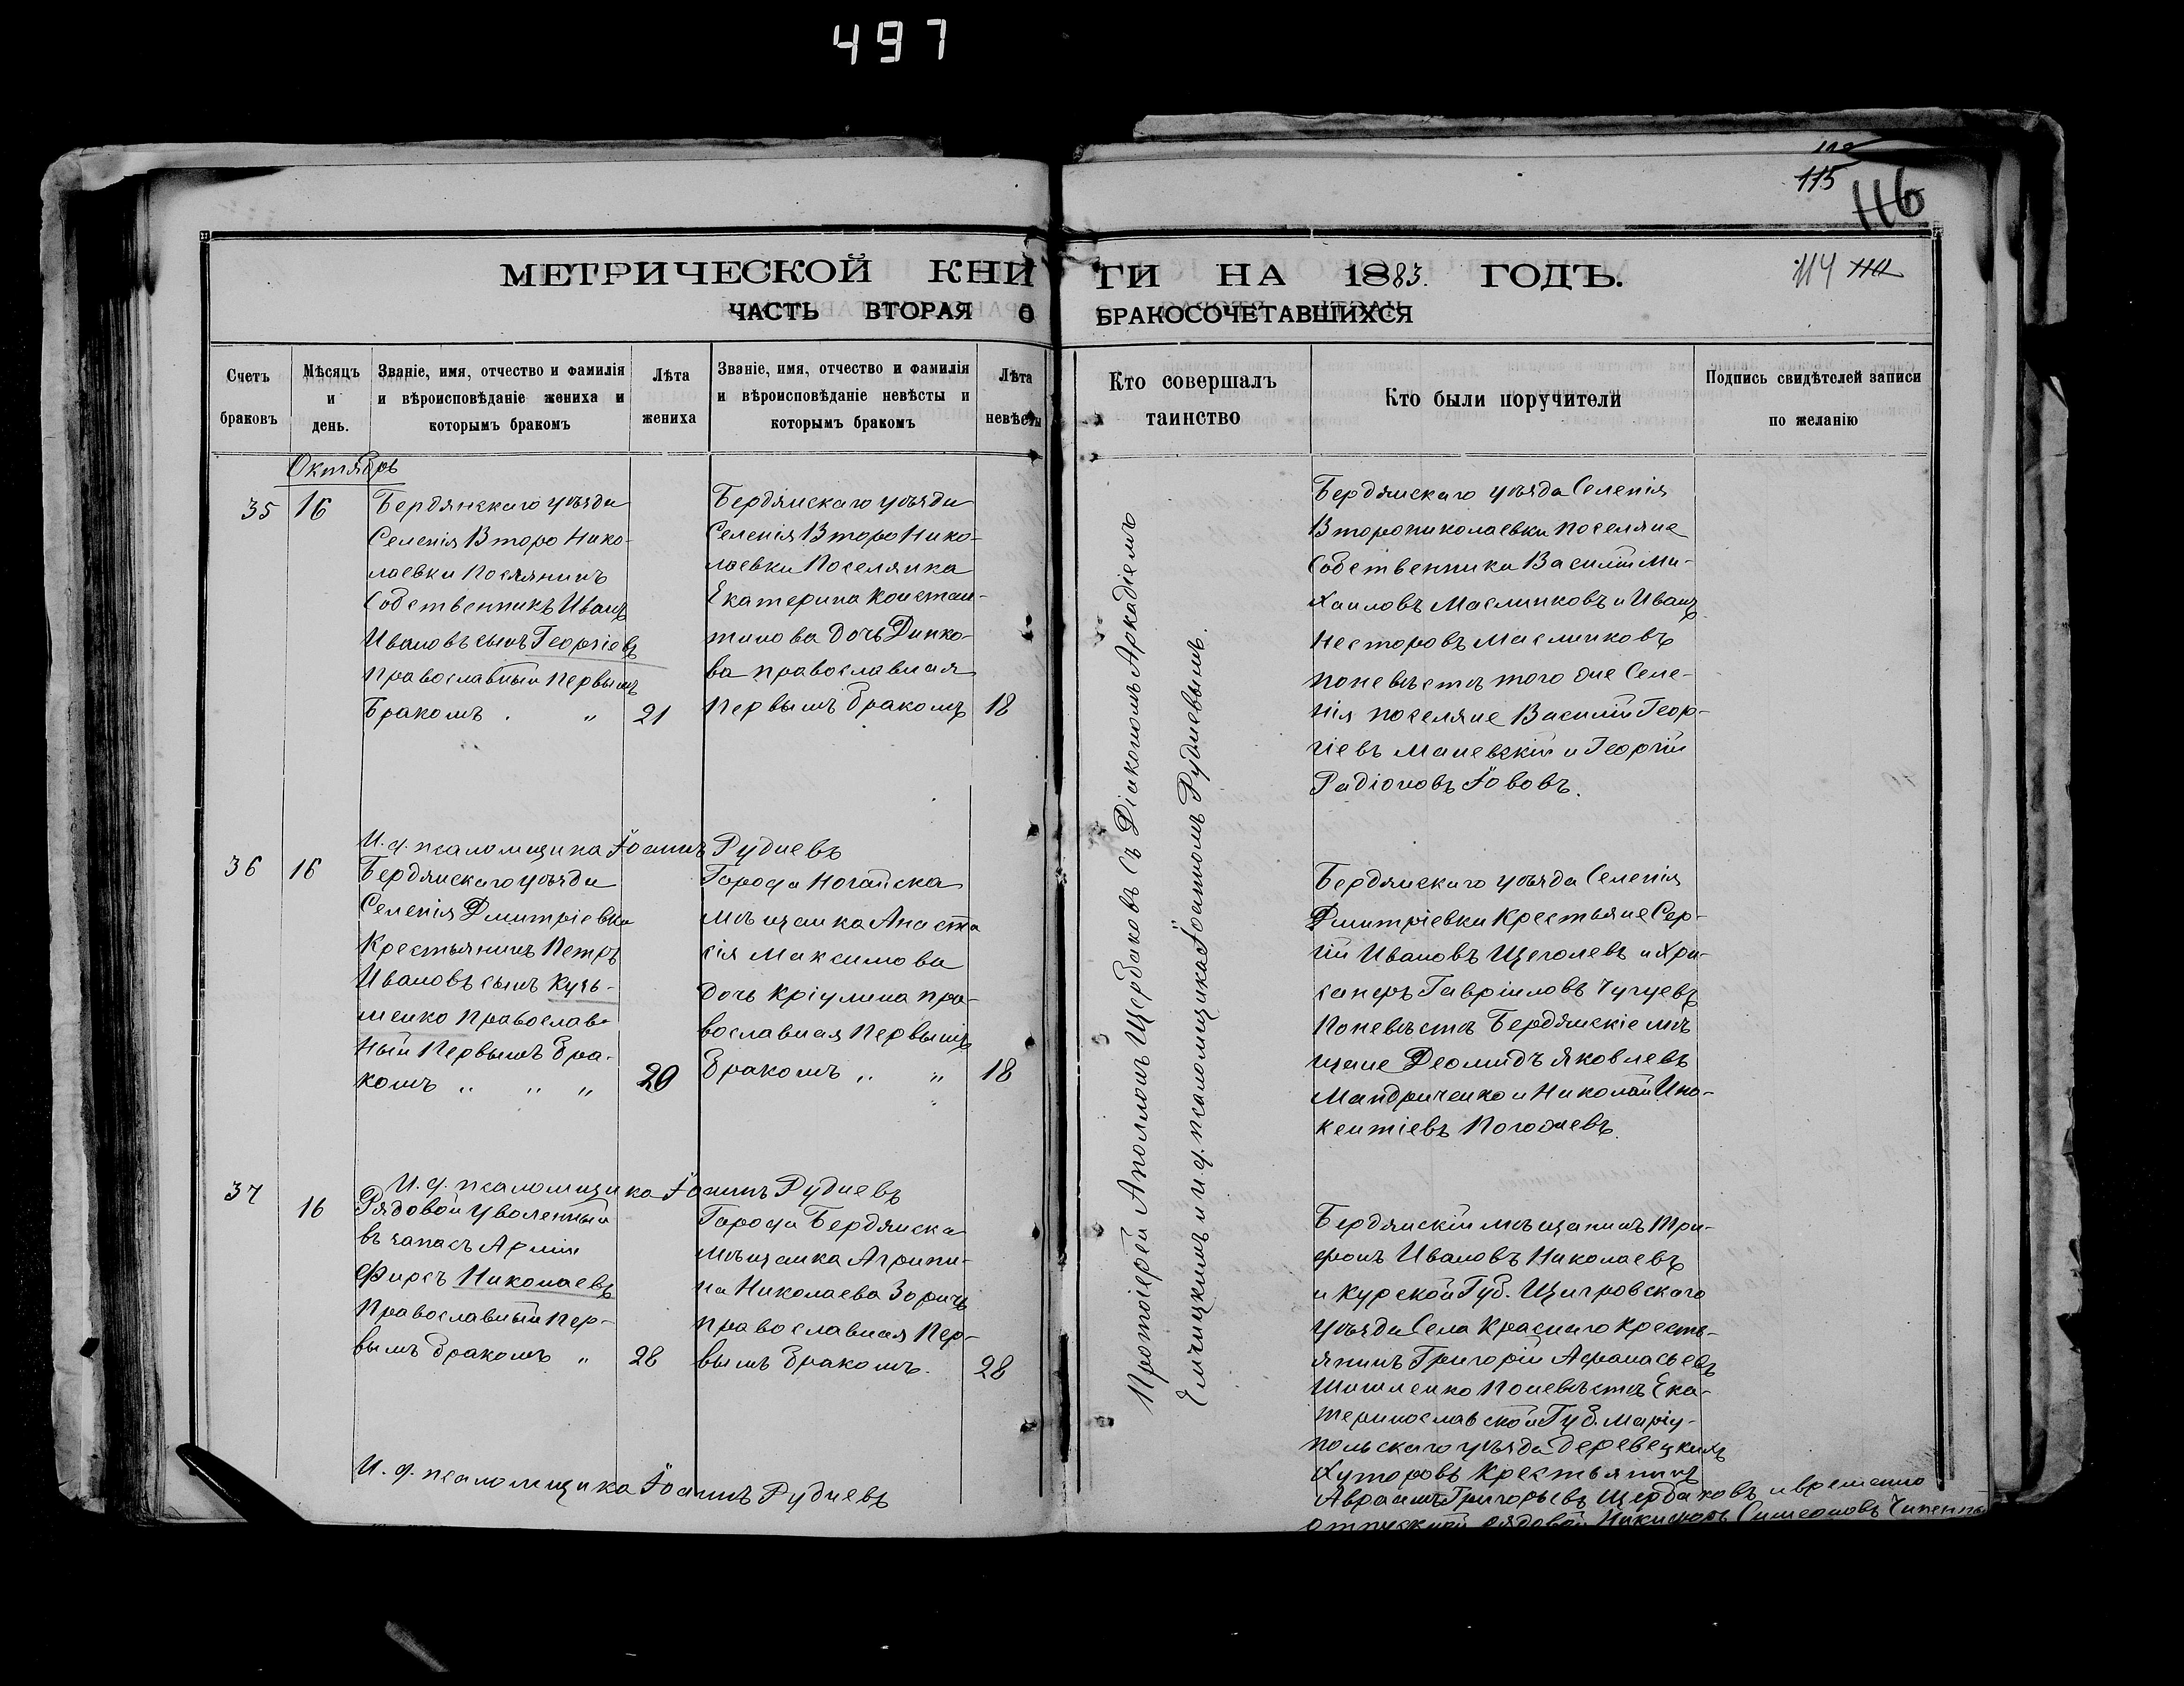 497
115
116
МЕТРИЧЕСКОЙ КНИГИ НА 1883. ГОДЪ.
114
ЧАСТЬ ВТОРАЯ О БРАКОСОЧЕТАВШИХСЯ
Счетъ браковъ
Мѣсяцъ и день.
Званіе, имя, отчество и фамилія и вѣроисповѣданіе жениха и которымъ бракомъ
Лѣта жениха
Званіе, имя, отчество и фамилія и вѣроисповѣданіе невѣсты и которымъ бракомъ
Лѣта невѣсты
Кто совершалъ таинство
Кто были поручители
Подпись свидѣтелей записи по желанію
Октябрь
35
16
Бердянскаго уѣзда
Селенія Второ Нико-
лаевки Поселянинъ
Собственникъ Иванъ
Ивановъ сынъ Георгіевъ
Православный первымъ
Бракомъ . „
21
Бердянскаго уѣзда
Селенія Второ Нико-
лаевки Поселянка
Екатерина Констан-
тинова дочь Динко-
ва православная
Первымъ Бракомъ
18
Бердянскаго уѣзда Селенія
Второниколаевки Поселяне
Собственники Василій Ми-
хаиловъ Маслинковъ и Иванъ
Несторовъ Маслинковъ
По невѣстѣ того же Селе-
нія поселяне Василій Геор-
гіевъ Маневскій и Георгій
Радіоновъ Іововъ.
И. д. псаломщика Іоаннъ Рудневъ
36
16
Бердянскаго уѣзда
Селенія Дмитріевки
Крестьянинъ Петръ
Ивановъ сынъ Кузь-
менко Православ-
ный Первымъ Бра-
комъ „ „ „
20
Города Ногайска
мѣщанка Анаста
сія Максимова
дочь Кріулина пра-
вославная Первымъ
Бракомъ „ „
18
Бердянскаго уѣзда Селенія
Дмитріевки Крестьяне Сер-
гій Ивановъ Щеголевъ и Хри-
санфъ Гавріиловъ Чугуевъ
По невѣстѣ Бердянскіе мѣ
щане Деомидъ Яковлевъ
Мандриченко и Николай Ино-
кентіевъ Погожевъ.
И. д. псаломщика Іоаннъ Рудневъ
37
16
Рядовой уволенный
въ запасъ Арміи
Фирсъ Николаевъ
Православный Пер-
вымъ бракомъ „
28
Города Бердянска
мѣщанка Агрипи-
на Николаева Зоричъ
православная Пер-
вымъ Бракомъ.
28
Бердянскій мѣщанинъ Три-
фонъ Ивановъ Николаевъ
и Курской Губ. Щигровскаго
уѣзда Села Краснаго Кресть-
янинъ Григорій Афанасьевъ
Шишленко По невѣстѣ Ека-
теринославской Губ. Маріу-
польскаго уѣзда Деревецкихъ
Хуторовъ Крестьянинъ
Авраамъ Григорьевъ Щербаковъ и временно
отпускной рядовой Никифоръ Симеоновъ
И. д. псаломщика Іоаннъ Рудневъ
Протоіерей Аполлонъ Щербаковъ съ Діакономъ Аркадіемъ
Емчицкимъ и и. д. псаломщика Іоанномъ Рудневымъ.